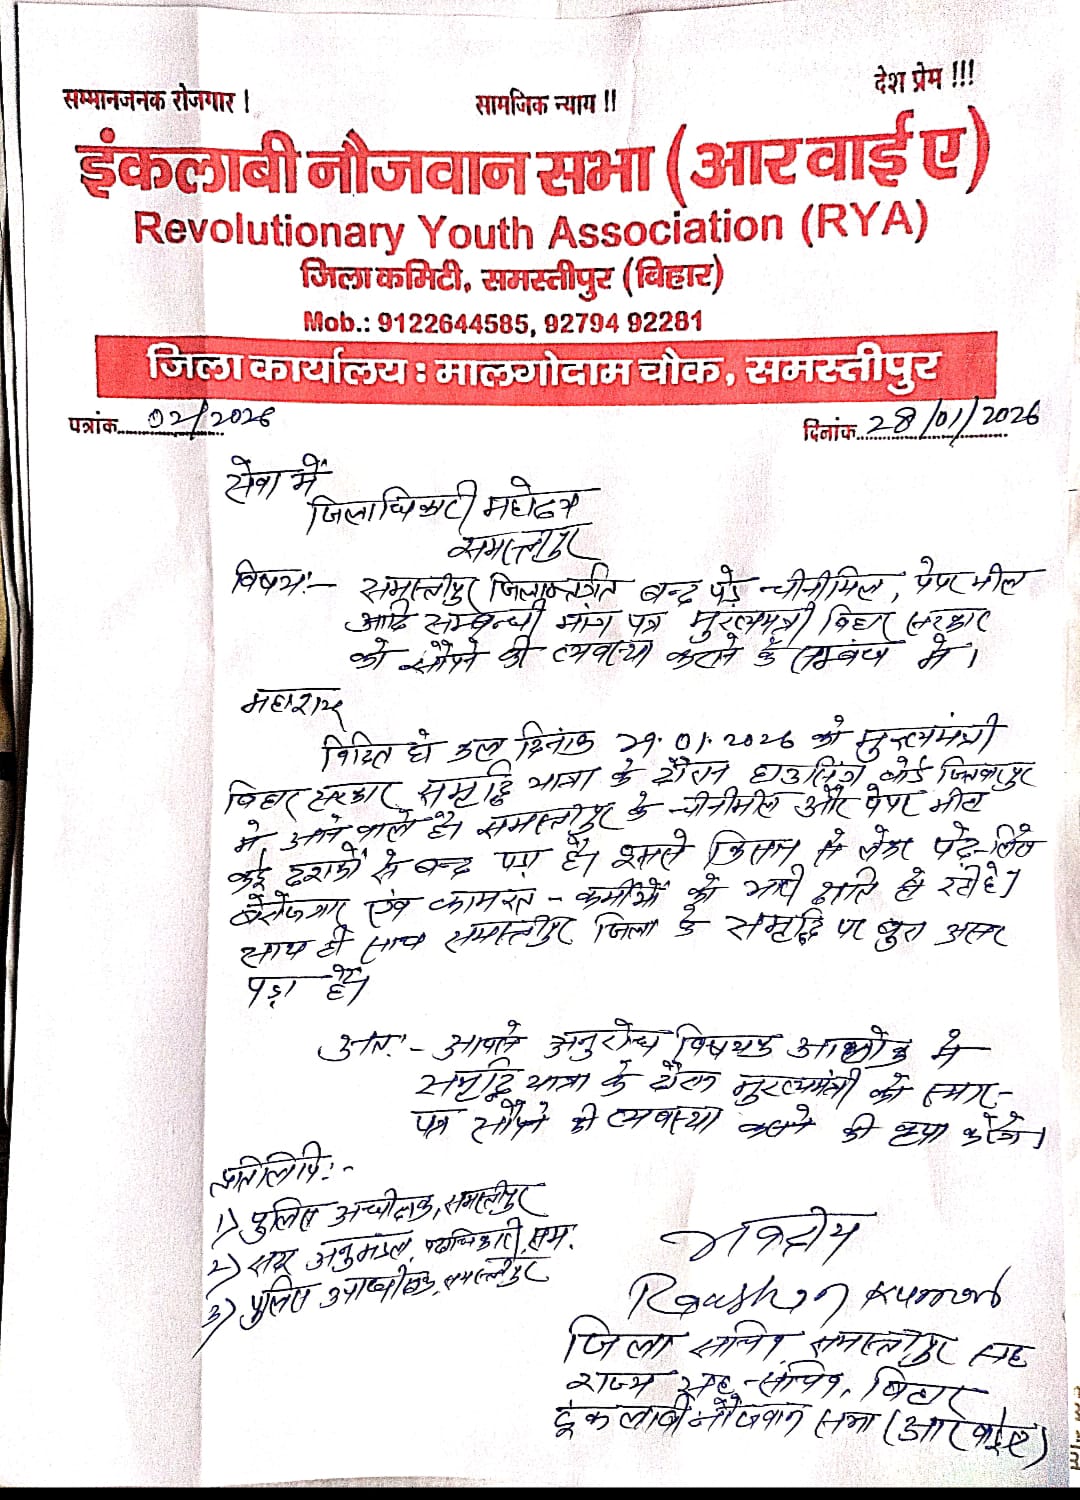 सम्मानजनक रोजगार !
सामजिक न्याय !!
देश प्रेम !!!
इंकलाबी नौजवान सभा (आर वाई ए)
Revolutionary Youth Association (RYA)
जिला कमिटी, समस्तीपुर (बिहार)
Mob.: 9122644585, 92794 92281
जिला कार्यालय : मालगोदाम चौक, समस्तीपुर
पत्रांक 02/2026
दिनांक 28/01/2026
सेवा में
जिलाधिकारी महोदय
समस्तीपुर
विषय:- समस्तीपुर जिलान्तर्गत बन्द पड़े चीनीमिल, पेपर मील
आदि सम्बन्धी मांग पत्र मुख्यमंत्री बिहार सरकार
को सौंपने की व्यवस्था कराने के सम्बंध में।
महाशय
विदित हो कल दिनांक 29.01.2026 को मुख्यमंत्री
बिहार सरकार समृद्धि यात्रा के दौरान हाउसिंग बोर्ड जितवारपुर
में आने वाले है। समस्तीपुर के चीनीमील और पेपर मील
कई दशकों से बन्द पड़ा है। इससे किसान से लेकर पढ़े-लिखे
बेरोजगार एवं कामगर-कर्मीओं को भारी क्षति हो रही है।
साथ ही साथ समस्तीपुर जिला के समृद्धि पर बुरा असर
पड़ा है।
अतः- आपसे अनुरोध विषयक आलोक में
समृद्धि यात्रा के दौरान मुख्यमंत्री को स्मार-
पत्र सौंपने की व्यवस्था कराने की कृपा करेंगे।
प्रतिलिपि:-
1) पुलिस अधीक्षक, समस्तीपुर
2) सदर अनुमंडल पदाधिकारी, सम.
3) पुलिस उपाधीक्षक, समस्तीपुर
भवदीय
Raushan Kumar
जिला सचिव समस्तीपुर सह
राज्य सह-सचिव, बिहार
इंकलाबी नौजवान सभा (आर वाई ए)